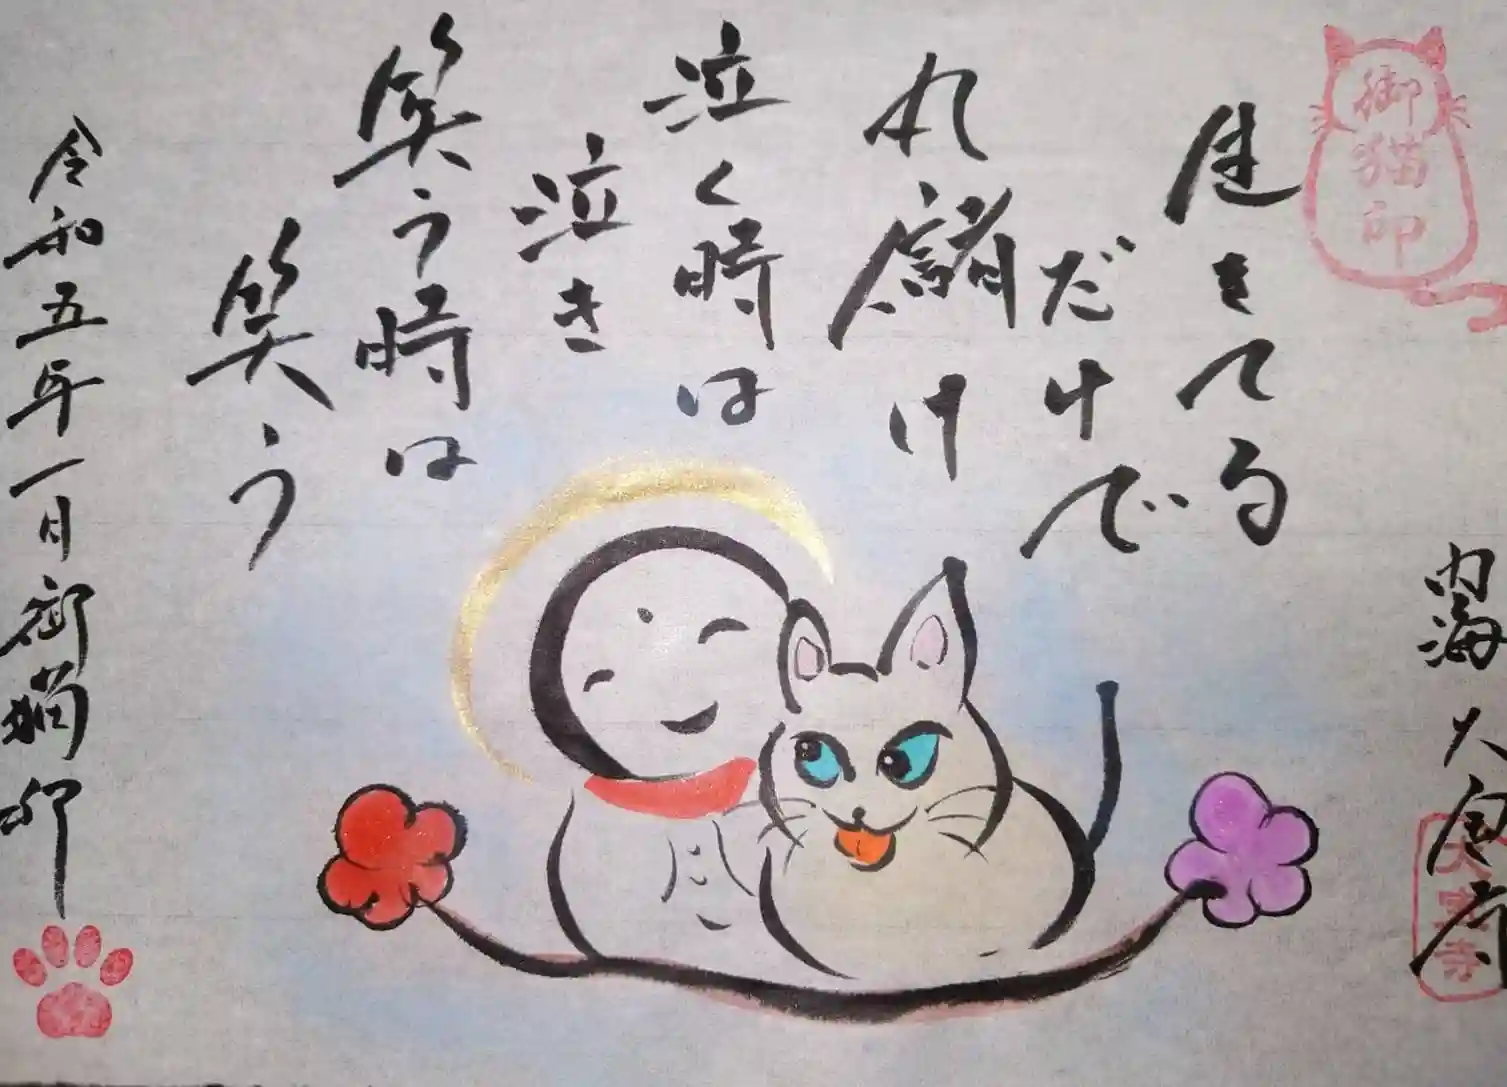 御猫印
生きてる
だけで
丸儲け
泣く時は
泣き
笑う時は
笑う
令和五年一月御猫印
内海